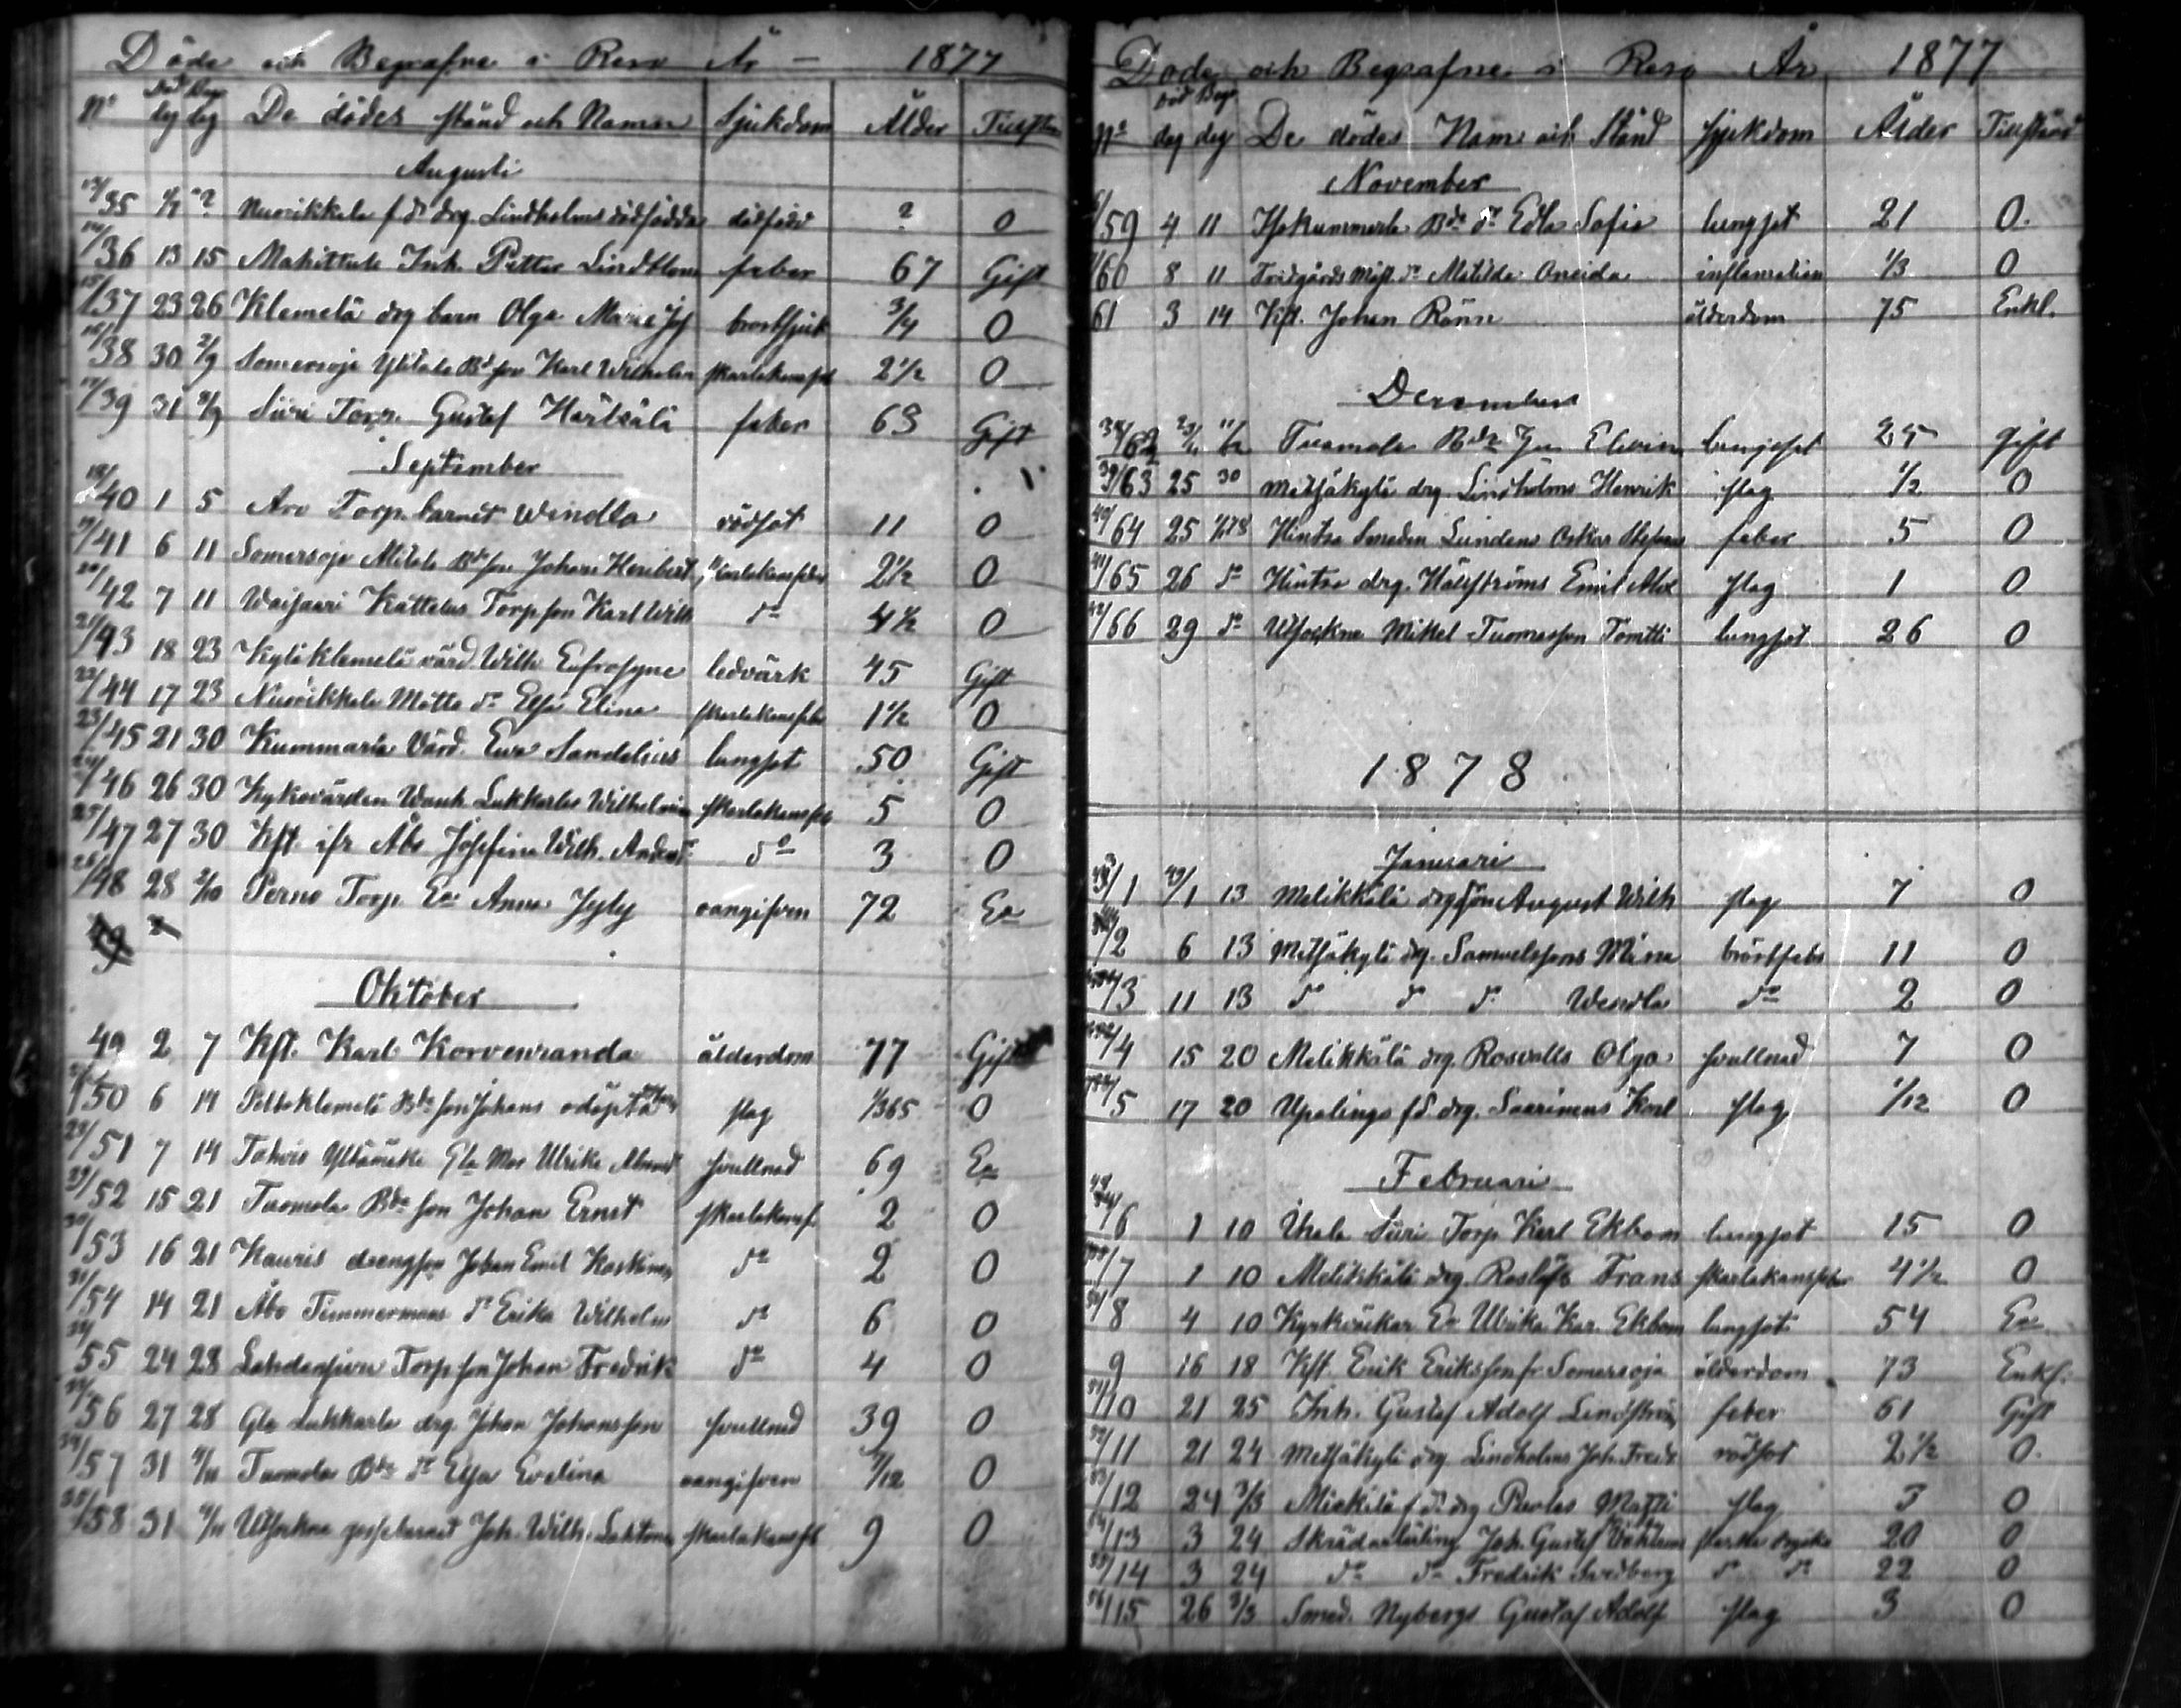 Döde och Begrafne i Reso År - 1877
No Död dag Begr dag De dödes stånd och Namn Sjukdom Ålder
Augusti
13/35 ? Nuorikkala Lindholms dödfödda dödfödd ? 0
14/36 13 15 Mahittula Inh. Petter Lindblom feber 67 Gift
15/37 23 26 Klemelä drg barn Olga Maria bröstsjuk 3/4 0
16/38 30 2/9 Somersoja Ylitalo Bd son Karl Wilhelm skarlakansf 2 1/2 0
17/39 31 Siiri Torp. Gustaf Härkälä feber 63 Gift
September
18/40 1 5 Aro Torp. barnet Windla rödsot 11 0
19/41 6 11 Somersoja Bde son Johan Heribert skarlakansfeber 2 1/2 0
20/42 7 11 Kattelus Torp son Karl Wilh do 4 1/2 0
21/43 18 23 Kyläklemelä värd. Wilh Eufrosyne ledvärk 45 Gift
22/44 17 23 Nuorikkala Matts dr Elsa Elina skarlakansfeb 1 1/2 0
23/45 21 30 Kummaria Värd. Eva Sandelius lungsot 50 Gift
24/46 26 30 Lukkarla Wilhelmina skarlakansfeb 5 0
25/47 27 30 Kft. ifr Åbo Josefina Wilh. do 3 0
26/48 28 2/10 Perno Torp Ea Anna oangifven 72 Ea
49
Oktober
49 2 7 Kft. Karl Korvenranda ålderdom 77 Gift
27/50 6 14 Peltoklemelä Bde son Johans odöpta slag 1/365 0
28/51 7 14 Tahvio Gla Mor Ulrika svullnad 69 Ea
29/52 15 21 Tuomola Bde son Johan Ernst skarlakansf. 2 0
30/53 16 21 Kauris drengson Johan Emil Koskinen do 2 0
31/54 14 21 Åbo Timmermans dr Erika Wilhelm do 6 0
32/55 24 28 Torp son Johan Fredrik do 4 0
33/56 27 28 Gla Lukkarla drg. Johan Johansson svullnad 39 0
34/57 31 4/11 Tuomola Bde dr Elsa Evelina oangifven 0
35/58 31 4/11 Utsockne gossebarnet Joh. Wilh. Lehtonen skarlakansfb 9 0
Döde och Begrafne i Reso År 1877
No Död dag Begr dag De dödes Namn och Stånd sjukdom Ålder Tillstånd
November
59 4 11 Isokummerla Bde dr Edla Sofia lungsot 21 0.
60 8 11 dr Matilda Oneida inflamation 1/3 0
61 3 14 Kft. Johan Rönn ålderdom 75 Enkl.
December
38/62 Tuomola Bde Elwin lungsot 25 gift
39/63 25 30 Metsäkylä drg. Lindholms Henrik slag 1/2 0
40/64 25 Hintsa Smeden Lundens Oskar feber 5 0
41/65 26 do Hintsa drg. Hällströms Emil slag 1 0
42/66 29 do Utsockne Mikel Tuomasson Tomtti lungsot 26 0
1878
Januari
1 13 Melikkälä drg son August Wilh slag 7 0
2 6 13 Metsäkylä drg. Samuelssons Mina bröstfeber 11 0
3 11 13 do do do Wendla do 2 0
4 15 20 Melikkälä drg. Roswalls Olga svullnad 7 0
5 17 20 Upalingo fd drg. Saarinens Karl slag 1/12 0
Februari
6 1 10 Siiri Torp Karl Ekbom lungsot 15 0
7 1 10 Melikkälä drg. Roslöfs Frans skarlakansfeber 4 1/2 0
8 4 10 Ea Ulrika Kar. Ekbom lungsot 54 Ea
9 16 18 Kft. Erik Eriksson fr Somersoja ålderdom 73 Enkl.
51/10 21 25 Inh. Gustaf Adolf Lindström feber 61 Gift
52/11 21 24 Metsäkylä drg Lindholms Joh. Fredr rödsot 2 1/2 0.
53/12 24 3/3 drg Matti slag 3 0
54/13 3 24 Skrädarlärling Joh. Gustaf starka drycker 20 0
55/14 3 24 do do Fredrik Svedberg do do 22 0
56/15 26 3/3 Smed. Nybergs Gustaf Adolf slag 3 0